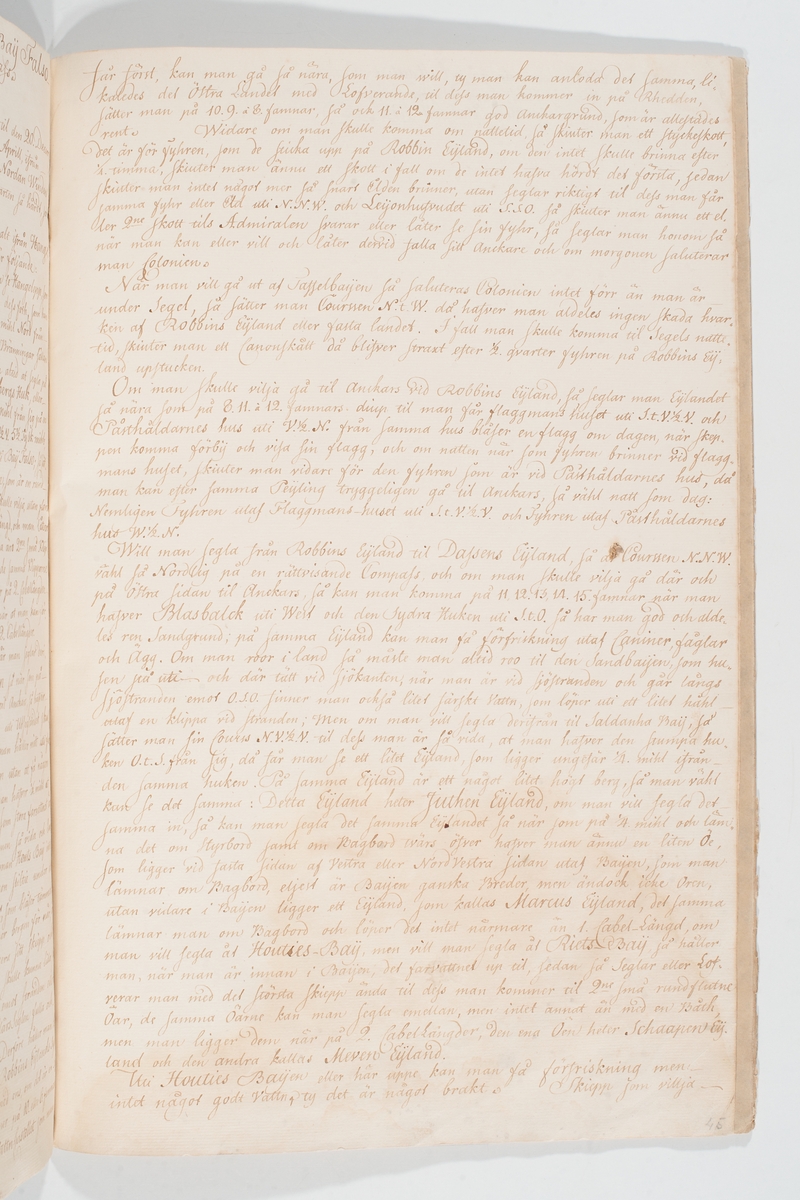 får först, kan man gå så nära, som man will, ty man kan anloda det samma, li-
kaledes det Östra Landet med Lofverande, til dess man kommer in på Rhedden,
sätter man på 10. 9. à 8. famnar, så och 11. à 12 famnar god Anckargrund, som är allestädes
rent. Widare om man skulle komma om nattetid, så skiuter man ett styckeskott,
det är för fyhren, som de sticka upp på Robbin Eÿland, om den intet skulle brinna efter
½ timma, skiuter man ännu ett skott i fall om de intet hafva hördt det första, sedan
skiuter man intet något mer så snart Elden brinner, utan seglar riktigt til dess man får
samma fyhr eller Eld uti N.N.W. och Leijonhufvudet uti S.S.O. så skiuter man ännu ett el.
ler 2ne skott tils Admiralen svarar eller låter se sin fyhr, så seglar man honom så
när man kan eller vill och låter dervid falla sitt Anckare och om morgonen saluterar
man Colonien.
När man vill gå ut af Taffelbaijen så saluteras Colonien intet förr än man är
under Segel, så sätter man Courssen N.t.W. då hafver man aldeles ingen skada hvar-
ken af Robbins Eÿland eller fasta landet. I fall man skulle komma til Segels natte-
tid, skiuter man ett Canonskått då blifver straxt efter ½ qvarter fyhren på Robbins Eÿ-
land upstucken.
Om man skulle vilja gå til Anckars vid Robbins Eÿland, så seglar man Eÿlandet
så nära som på 8. 11. à 12. famnars diup til man får flaggmans huset uti S.t.V.½.V. och
Påsthåldarnes hus uti V.½.N. från samma hus blåser en flagg om dagen, när skep-
pen komma förbij och visa sin flagg, och om natten när som fyhren brinner vid flagg-
mans huset, skiuter man vidare för den fyhren som är vid Påsthåldarnes hus, då
man kan efter samma Peijling tryggeligen gå til Anckars, så vähl natt som dag:
Nemligen Fyhren utaf Flaggmans-huset uti S.t.V.½.V. och Fyhren utaf Påsthåldarnes
hus W.½.N.
Will man segla från Robbins Eÿland til Dassens Eÿland, så är Courssen N.N.W.
vähl så Nordlig på en rättvisande Compass, och om man skulle vilja gå där och
på Östra sidan til Anckars, så kan man komma på 11. 12. 13. 14. 15. famnar när man
hafver Blasbalck uti West och den Sydra Huken uti S.t.O. så har man god och alde-
les ren Sandgrund; på samma Eÿland kan man få förfriskning utaf Caniner, fåglar
och Ägg. Om man roor i land så måste man altid roo til den Sandbaijen, som hu-
sen stå uti och där tätt vid sjökanten, när man är vid sjöstranden och går längs
sjöstranden emot O.S.O. finner man också litet färskt Vattn, som löper uti ett litet håhl
utaf en klippa vid stranden; Men om man vill segla derifrån til Saldanha Baÿ, så
sätter man sin Cours N.V.½.V. til dess man är så vida, at man hafver den stumpa hu-
ken O.t.S. från sig, då får man se ett litet Eÿland, som ligger ungefär ½. mihl ifrån
den samma huken. På samma Eÿland är ett något litet högt berg, så man vähl
kan se det samma: Detta Eÿland heter Juthen Eÿland, om man vill segla det
samma in, så kan man segla det samma Eÿlandet så när som på ¼ mihl och läm-
na det om Styrbord samt om Bagbord twärs öfver hafver man ännu en liten Öe,
som ligger vid fasta sidan af Vestra eller NordVestra sidan utaf Baijen, som man
lämnar om Bagbord, eljest är Baijen ganska Breder, men ändock icke Oren,
utan vidare i Baijen ligger ett Eÿland, som kallas Marcus Eÿland, det samma
lämnar man om Bagbord och löper det intet närmare än 1. Cabel-Längd, om
man vill segla åt Houties-Baÿ, men vill man segla åt Riets-Baÿ så håller
man, när man är innan i Baijen, det farvattnet up til, sedan så seglar eller Lof-
verar man med det största skiepp ända til dess man kommer til 2ne små rundflutne
Öar, de samma Öarne kan man segla emellan, men intet annat än med en Båth,
men man ligger dem när på 2. Cabel Längder, den ena Ön heter Schaapen Eÿ-
land och den andra kallas Meven Eÿland.
Uti Houties Baijen eller här uppe kan man få förfriskning men
intet något godt Vattn, ty det är något brakt. Skiepp som villja